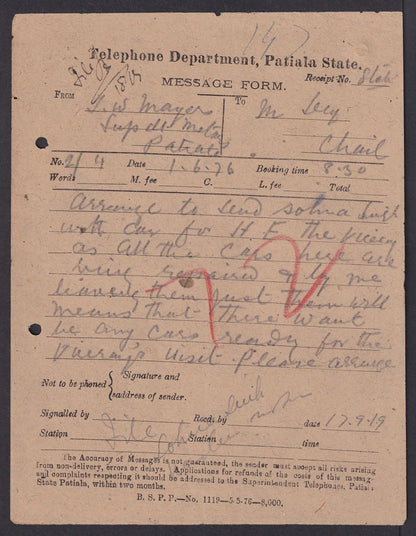 147
Telephone Department, Patiala State.
MESSAGE FORM.
Receipt No. State
File
FROM
J. W. Mayer
Supdt Motor
Patiala
To
M Secy
Chail
No. 2/4 Date 1-6-76 Booking time 8-30
Words M. fee C. L. fee Total
Arrange to send
with car for H. E. the Viceroy
as all the cars here are
being repaired & by me
leaving them just them will
means that there want
be any cars ready for the
Viceroy's visit. Please arrange
Not to be phoned { Signature and
address of sender.
Signalled by Recds. by date 17.9.19
Station Station time
File
The Accuracy of Messages is not guaranteed, the sender must accept all risks arising
from non-delivery, errors or delays. Applications for refunds of the costs of this message
and complaints respecting it should be addressed to the Superintendent Telephones, Patiala
State Patiala, within two months.
B. S. P. P.—No. 1119—5-5-76—8,000.